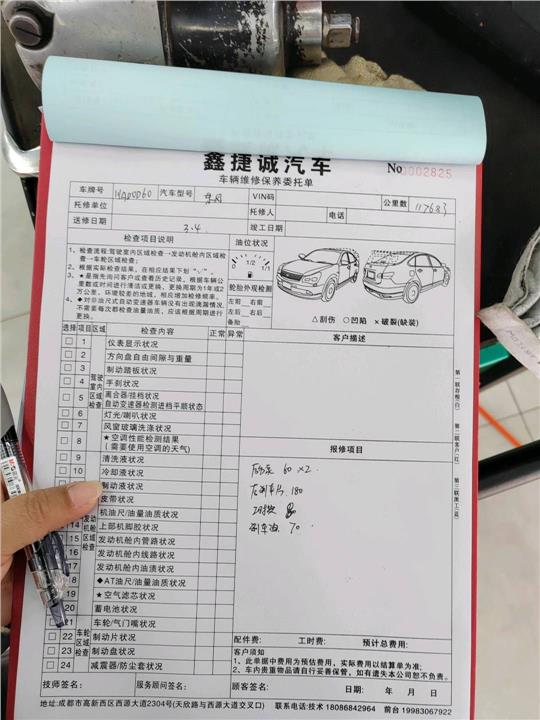 鑫捷诚汽车
车辆维修保养委托单
No 0002825
车牌号 汽车型号 东风 VIN码 公里数 117683
托修单位 托修人 电话
送修日期 3.4 竣工日期
检查项目说明 油位状况
1、检查流程:驾驶室内区域检查→发动机舱内区域检查→车轮区域检查;
2、根据实际检查结果,在相应结果下划“√”。
3、★是指先询问客户或查看历史记录,根据车辆公里数或时间进行清洁或更换,更换周期为1年或2万公里,环境较差的地域,相应增加检修频率。
4、◆对非油尺式自动变速器车辆没有出现泄漏情况,不需要每次都检查油量油质,应该根据周期进行更换。
0 1/2 1/1
轮胎外观检测
左前 右前
左后 右后
备胎
△刮伤 ○凹陷 ×破裂(缺装)
选择 项目 区域 检查内容 正常 异常 客户描述
驾驶室内区域检查
1 仪表显示状况
2 方向盘自由间隙与重量
3 制动踏板状况
4 手刹状况
5 离合器/挂档状况
自动变速器检测进档平顺状态
6 灯光/喇叭状况
7 风窗玻璃洗涤状况
8 ★空调性能检测结果
(需要使用空调的天气)
报修项目
9 清洗液状况
10 冷却液状况
制动液状况
皮带状况
机油尺/油量油质状况
发动机舱内区域检查
14 上部机脚胶状况
15 发动机舱内管路状况
16 发动机舱内线路状况
17 发动机舱内油渍状况
18 ◆AT油尺/油量油质状况
19 ★空气滤芯状况
20 蓄电池状况
60 ×2
180
刹车油 70
车轮区域检查
21 车轮/气门嘴状况
22 制动片状况
23 制动盘状况
24 减震器/防尘套状况
配件费: 工时费: 预计总费用:
客户须知
1、此单据中费用为预估费用,实际费用以结算单为准;
2、车内贵重物品请自行妥善保管,如有遗失本公司恕不负责。
技师签名: 服务顾问签名: 顾客签名: 日期: 年 月 日
地址:成都市高新西区西源大道2304号(天欣路与西源大道交叉口) 联系电话:技术18086842964 前台19983067922
第一联存根(白)
第二联客户(红)
第三联派工(蓝)